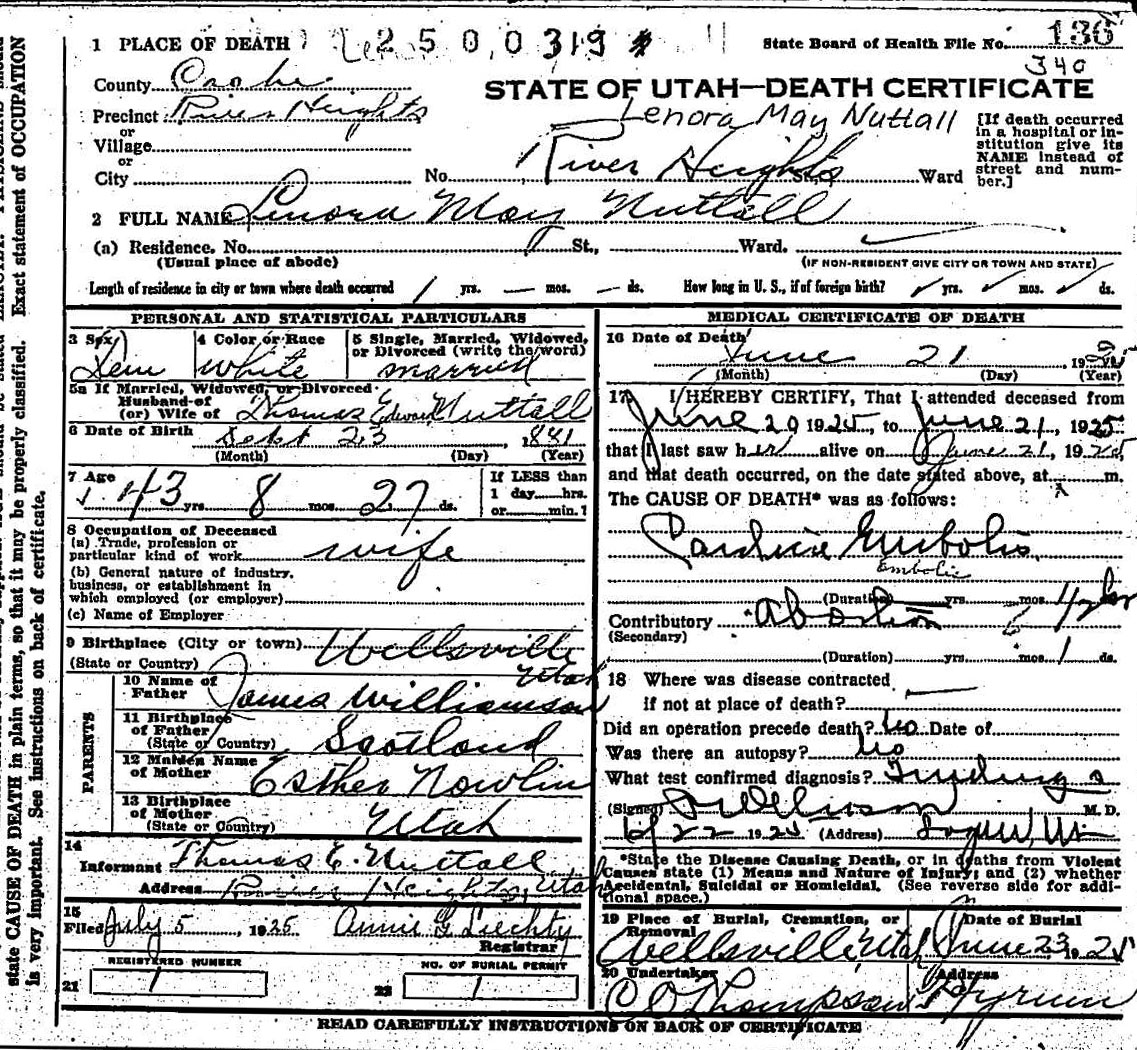 1 PLACE OF DEATH 2 5 0 0 319
State Board of Health File No. 136
340
County Cache
STATE OF UTAH—DEATH CERTIFICATE
Precinct River Heights
Lenora May Nuttall
or
Village
or
City No. River Heights Ward
[If death occurred
in a hospital or in-
stitution give its
NAME instead of
street and num-
ber.]
2 FULL NAME Lenora May Nuttall
(a) Residence. No. St., Ward.
(Usual place of abode) (IF NON-RESIDENT GIVE CITY OR TOWN AND STATE)
Length of residence in city or town where death occurred 1 yrs. — mos. — ds. How long in U. S., if of foreign birth? yrs. mos. ds.
PERSONAL AND STATISTICAL PARTICULARS
3 Sex Fem
4 Color or Race white
5 Single, Married, Widowed,
or Divorced (write the word)
married
5a If Married, Widowed, or Divorced
Husband of
(or) Wife of Thomas Edward Nuttall
6 Date of Birth Sept 23 1881
(Month) (Day) (Year)
7 Age 43 yrs 8 mos. 27 ds.
If LESS than
1 day hrs.
or min.?
8 Occupation of Deceased
(a) Trade, profession or
particular kind of work wife
(b) General nature of industry,
business, or establishment in
which employed (or employer)
(c) Name of Employer
9 Birthplace (City or town) Wellsville
(State or Country) Utah
PARENTS
10 Name of
Father James Williamson
11 Birthplace
of Father
(State or Country) Scotland
12 Maiden Name
of Mother Esther Nowlin
13 Birthplace
of Mother
(State or Country) Utah
14
Informant Thomas E. Nuttall
Address River Heights, Utah
15
Filed July 5, 1925 Annie G Liechty
Registrar
REGISTERED NUMBER
21 1
NO. OF BURIAL PERMIT
22 1
MEDICAL CERTIFICATE OF DEATH
16 Date of Death June 21 19
(Month) (Day) (Year)
17 I HEREBY CERTIFY, That I attended deceased from
June 20 1925, to June 21, 1925
that I last saw her alive on June 21, 1925
and that death occurred, on the date stated above, at m.
The CAUSE OF DEATH* was as follows:
Embolis
Embolic
(Duration) yrs. mos.
Contributory Abortion
(Secondary)
(Duration) yrs. mos. 1 ds.
18 Where was disease contracted
if not at place of death?
Did an operation precede death? no Date of
Was there an autopsy? no
What test confirmed diagnosis?
(Signed) M. D.
6/22 1925 (Address) Logan, Ut
*State the Disease Causing Death, or in deaths from Violent
Causes state (1) Means and Nature of Injury; and (2) whether
Accidental, Suicidal or Homicidal. (See reverse side for addi-
tional space.)
19 Place of Burial, Cremation, or
Removal
Wellsville Utah
Date of Burial
June 23 1925
20 Undertaker
C O Thompson
Address
Hyrum
READ CAREFULLY INSTRUCTIONS ON BACK OF CERTIFICATE
Exact statement of OCCUPATION
state CAUSE OF DEATH in plain terms, so that it may be properly classified.
is very important. See instructions on back of certificate.